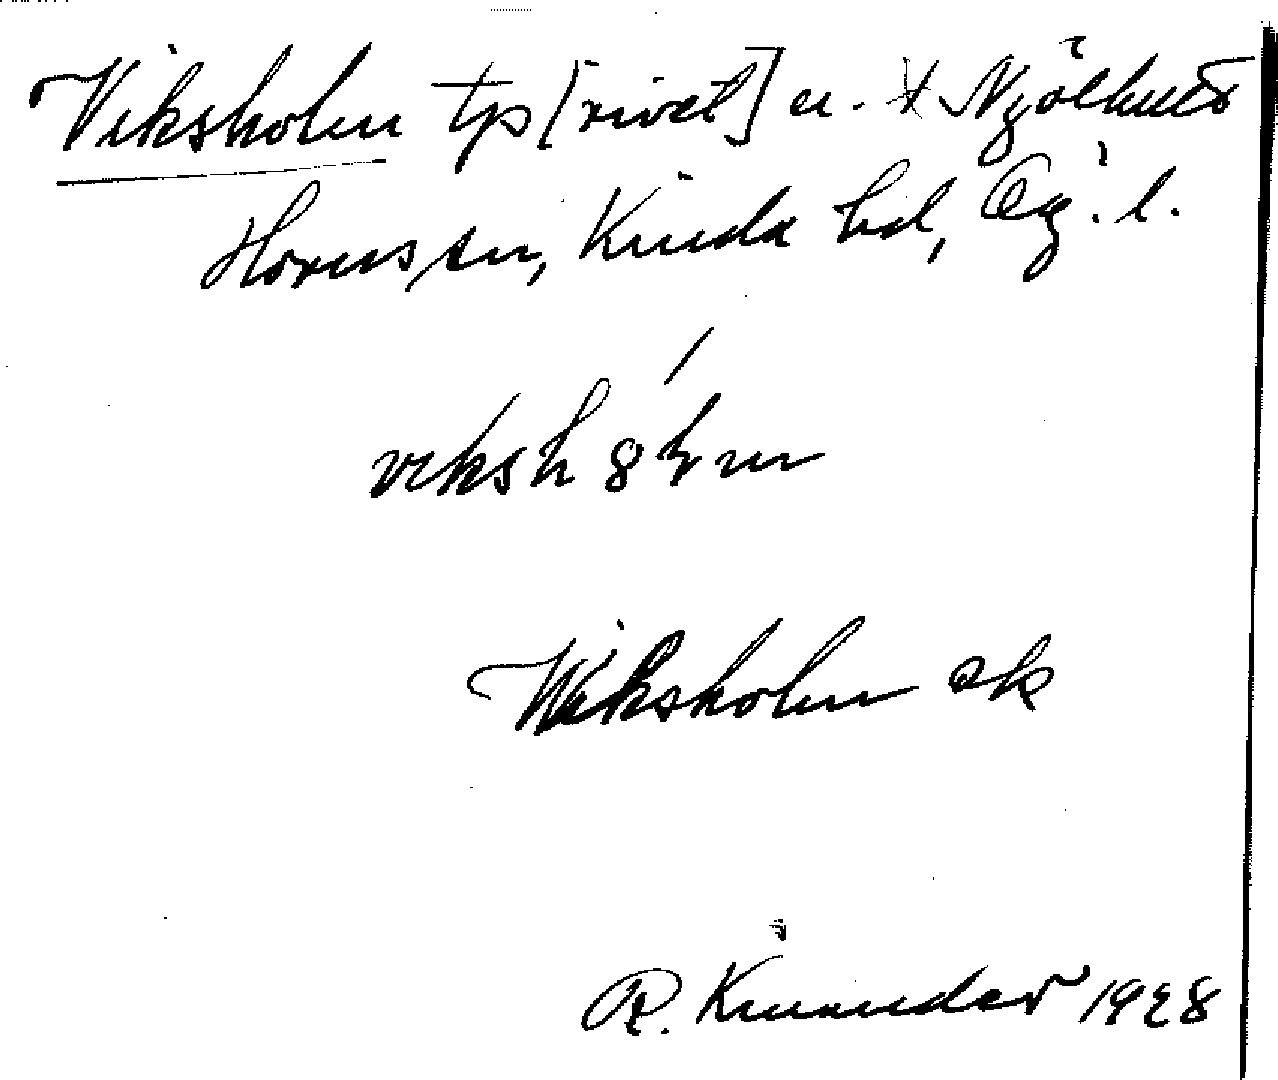 Viksholm tp [rivet] u. † Mjölhult
Horns sn, Kinda hd, Ög. l.
viksh8łm
Wiksholm ek
R. Kinander 1928